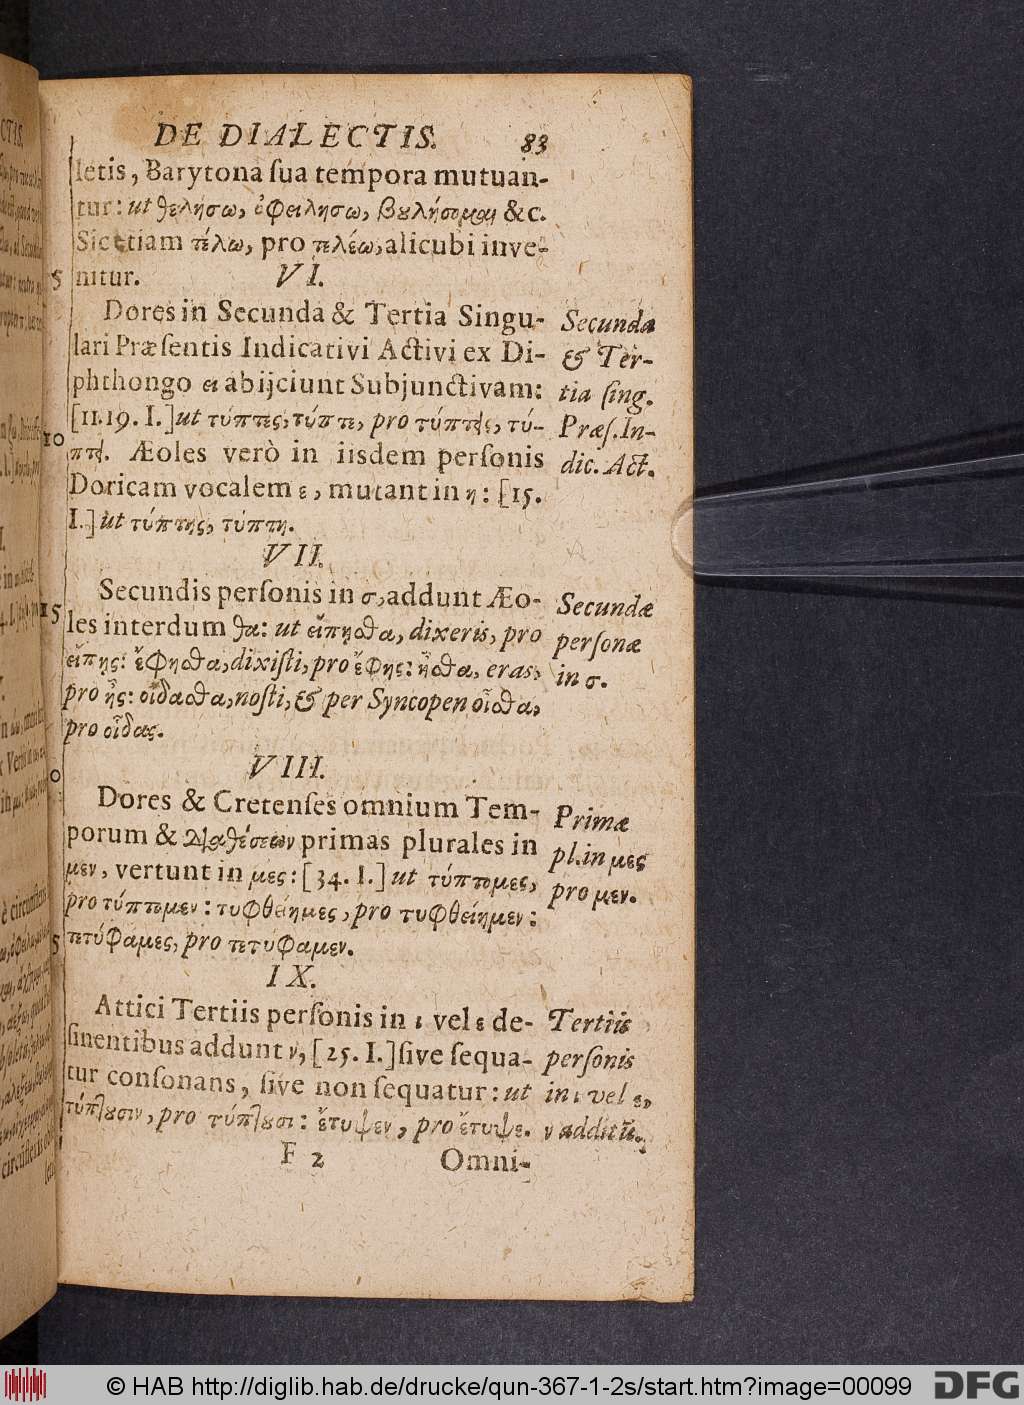 DE DIALECTIS. 83
letis, Barytona ſua tempora mutuan-
tur: ut θελήσω, ὀφειλησω, βȣλήσομαι &c.
Sic etiam πέλω, pro πελέω, alicubi inve-
5 nitur. VI.
Dores in Secunda & Tertia Singu-
lari Præſentis Indicativi Activi ex Di-
phthongo ει abijciunt Subjunctivam:
[11.19. I.] ut τύπτες, τύπτε, pro τύπτεις, τύ-
10 πτει. Æoles verò in iisdem perſonis
Doricam vocalem ε, mutant in η: [15.
I.] ut τύπτης, τύπτη.
VII.
Secundis perſonis in σ, addunt Æo-
15 les interdum θα: ut εἴπησθα, dixeris, pro
εἴπης: ἔφησθα, dixiſti, pro ἔφης: ἦσθα, eras,
pro ἦς: οἴδασθα, noſti, & per Syncopen οἶσθα,
pro οἶδας.
VIII.
Dores & Cretenſes omnium Tem-
porum & διαθέσεων primas plurales in
μεν, vertunt in μες: [34. I.] ut τύπτομες,
pro τύπτομεν: τυφθείημες, pro τυφθείημεν:
5 τετύφαμες, pro τετύφαμεν.
IX.
Attici Tertiis perſonis in ι vel ε de-
ſinentibus addunt ν, [25. I.] ſive ſequa-
tur conſonans, ſive non ſequatur: ut
τύπτȣσιν, pro τύπτȣσι: ἔτυψεν, pro ἔτυψε.
F 2 Omni-
Secunda
& Ter-
tia ſing.
Præſ. In-
dic. Act.
Secundæ
perſonæ
in σ.
Primæ
pl. in μες
pro μεν.
Tertiis
perſonis
in ι vel ε,
ν additũ.
© HAB http://diglib.hab.de/drucke/qun-367-1-2s/start.htm?image=00099
DFG